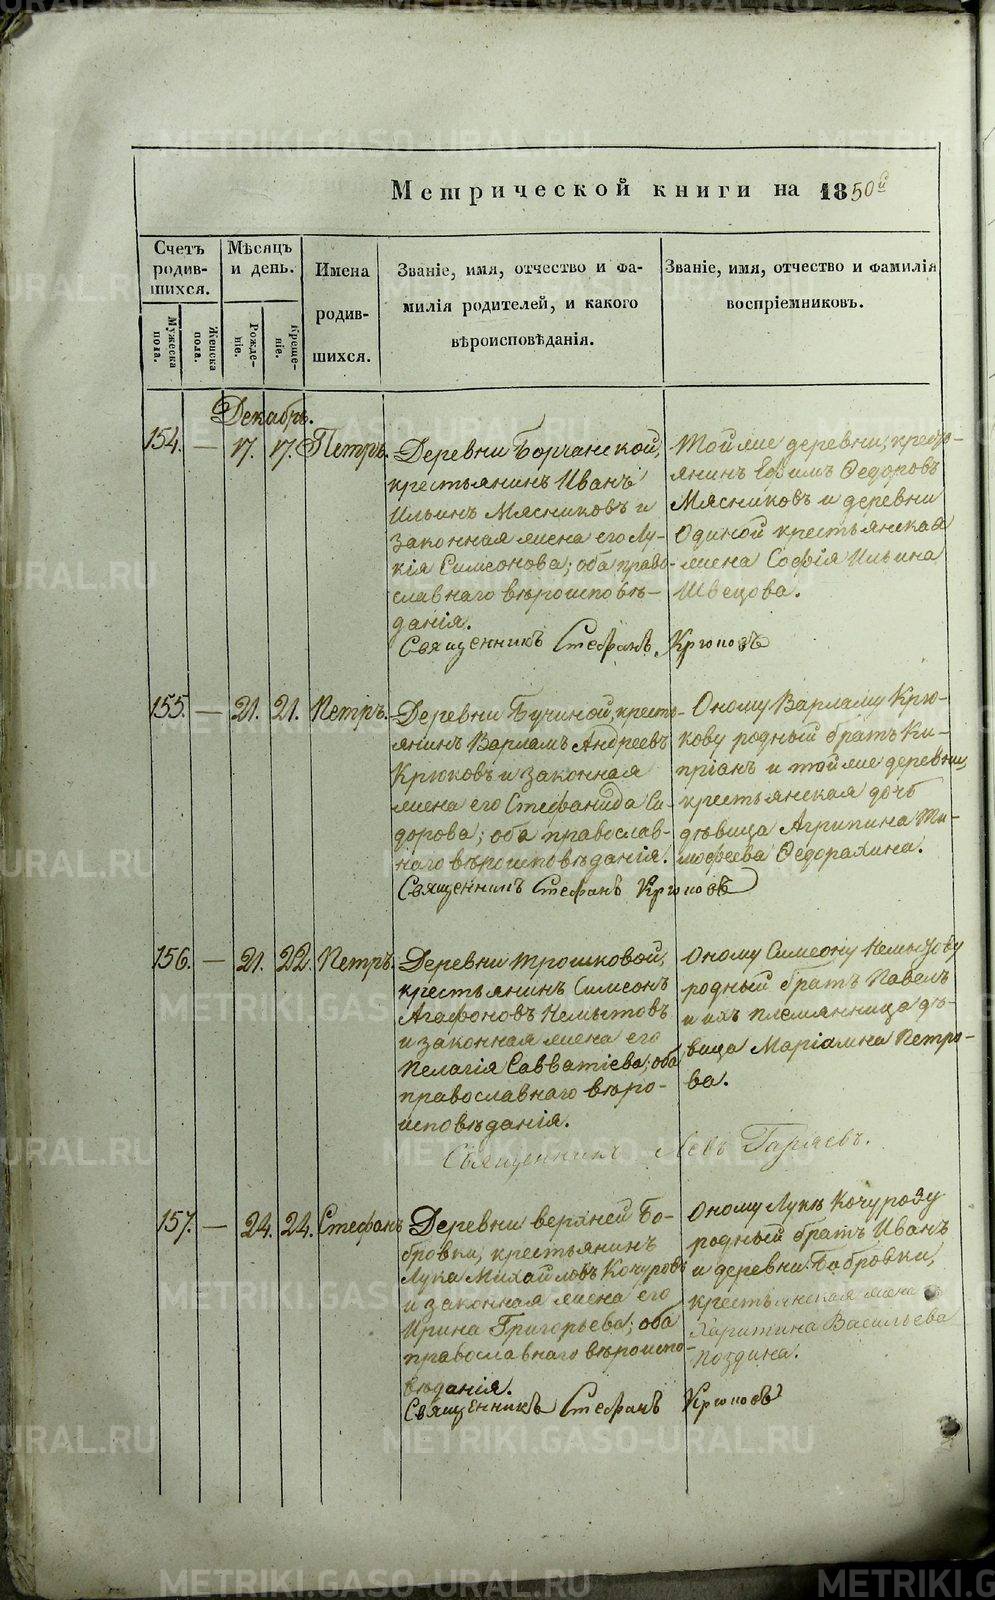 Метрической книги на 1850й
Счетъ родив-шихся.
Мужеска пола.
Женска пола.
Мѣсяцъ и день.
Рожде-ніе.
Креще-ніе.
Имена
родив-
шихся.
Званіе, имя, отчество и фа-
милія родителей, и какого
вѣроисповѣданія.
Званіе, имя, отчество и фамилія
воспріемниковъ.
Декабрь.
154. — 17. 17. Петръ.
Деревни Борчанской,
крестьянинъ Иванъ
Ильинъ Мясниковъ и
законная жена его Лу-
кія Симеонова; оба право-
славнаго вѣроисповѣ-
данія.
Тойже деревни, кресть-
янинъ Ефимъ Ѳедоровъ
Мясниковъ и деревни
Одиной крестьянская
жена Софія Ильина
Швецова.
Священникъ Стефанъ
155. — 21. 21. Петръ.
Деревни Бучиной, кресть-
янинъ Варлаамъ Андреевъ
Крюковъ и законная
жена его Стефанида Си-
дорова; оба православ-
наго вѣроисповѣданія.
Оному Варламу Крю-
кову родный братъ Ки-
пріанъ и тойже деревни,
крестьянская дочь
дѣвица Агрипина Ти-
мофеева Ѳедорахина.
Священникъ Стефанъ
156. — 21. 22. Петръ.
Деревни Трошковой,
крестьянинъ Симеонъ
Агафоновъ Немытовъ
и законная жена его
Пелагія Савватіева; оба
православнаго вѣро-
исповѣданія.
Оному Симеону Немытову
родный братъ Павелъ
и ихъ племянница дѣ-
вица Маріамна Петро-
ва.
Священникъ Левъ Гаряевъ.
157. — 24. 24. Стефанъ
Деревни верхней Бо-
бровки, крестьянинъ
Лука Михайловъ Кочуровъ
и законная жена его
Ирина Григорьева; оба
православнаго вѣроиспо-
вѣданія.
Оному Лукѣ Кочурову
родный братъ Иванъ
и деревни Бобровки,
крестьянская жена
Харитина Васильева
Поздина.
Священникъ Стефанъ
METRIKI.GASO-URAL.RU